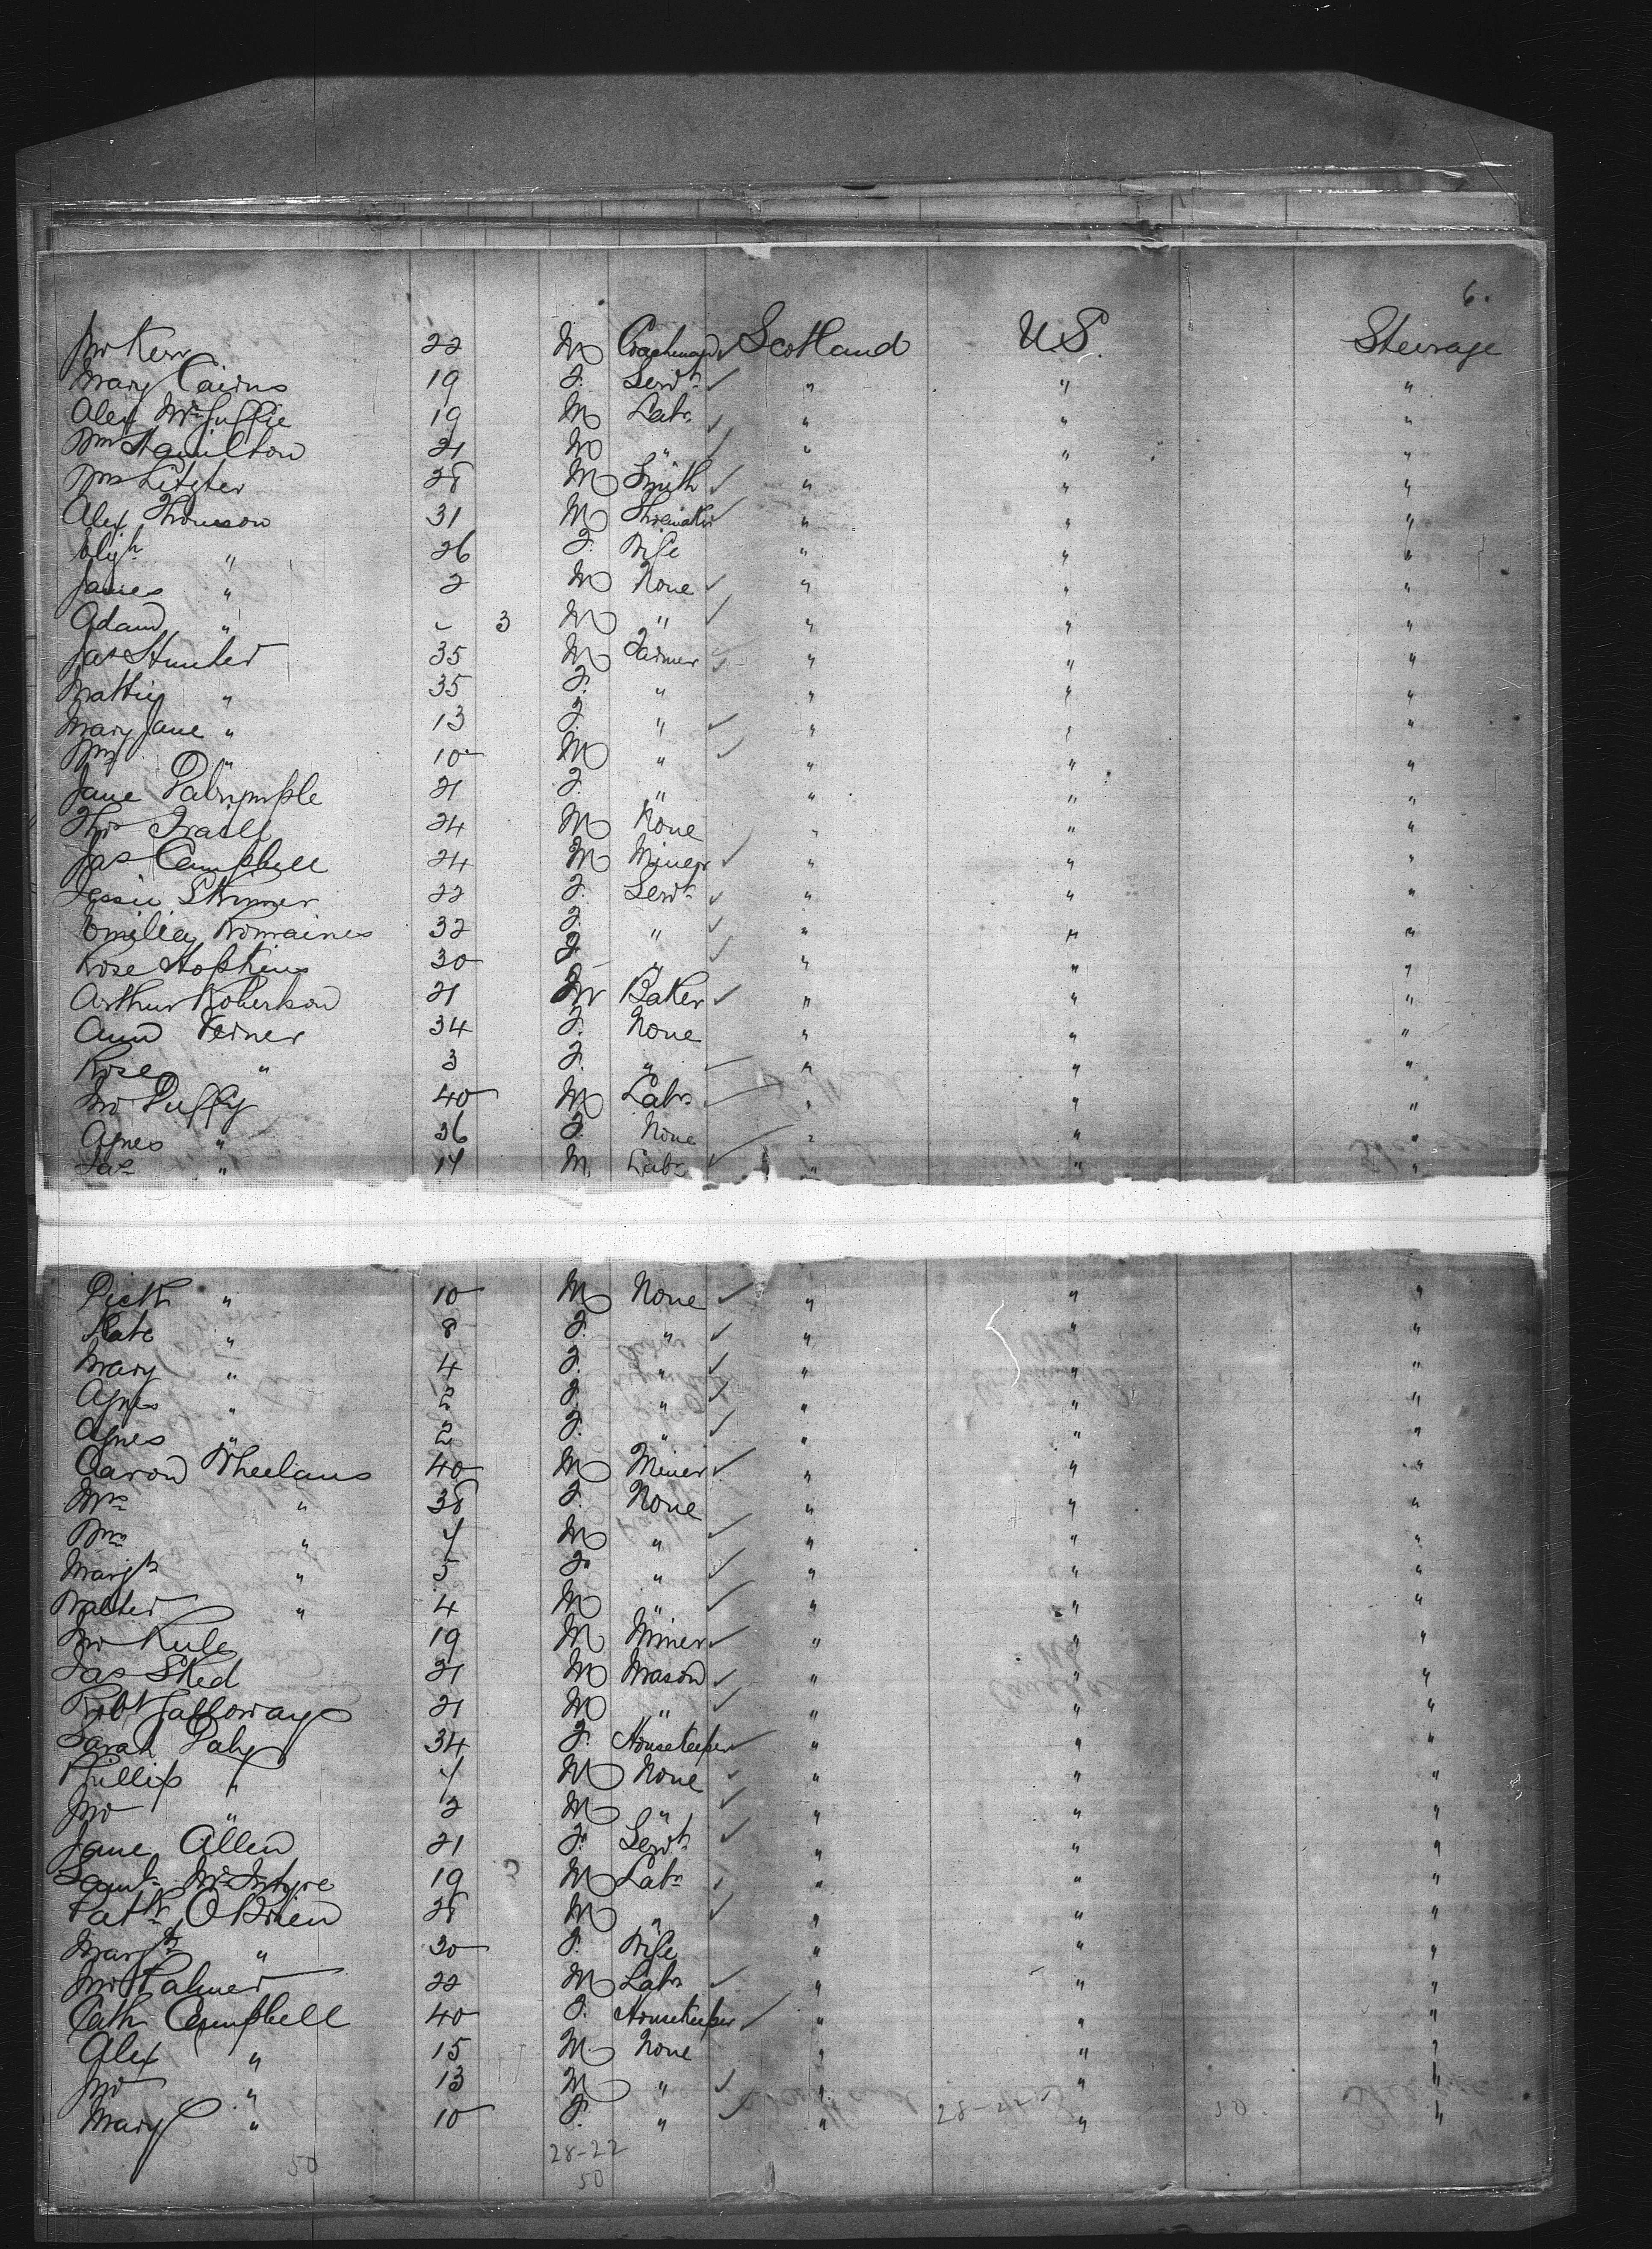 6.
Jno Kerr 22 M Coachman Scotland U.S. Steerage
Mary Cairns 19 F. Servt " " "
Alex McGuffie 19 M Labr " " "
Wm Hamilton 21 M " " " "
Wm Litster 28 M Smith " " "
Alex Thomson 31 M Shoemaker " " "
Elizh " 26 F. Wife " " "
James " 2 M None " " "
Adam " 3 M " " " "
Jas Hunter 35 M Farmer " " "
Mattie " 35 F. " " " "
Mary Jane " 13 F. " " " "
Wm " 10 M " " " "
Jane Dalrymple 21 F. " " " "
Thos Traill 24 M None " " "
Jas Campbell 24 M Miner " " "
Jessie Skinner 22 F. Servt " " "
Emilia Romaines 32 F. " " " "
Rose Hopkins 30 F " " " "
Arthur Robertson 21 M Baker " " "
Ann Verner 34 F. None " " "
Rose " 3 F. " " " "
Jno Duffy 40 M Labr " " "
Agnes " 36 F. None " " "
Jas " 14 M Labr " " "
Dick " 10 M None " " "
Kate " 8 F. " " " "
Mary " 4 F. " " " "
Agnes " 2 F. " " " "
Agnes " 2 F. " " " "
Aaron Wheelans 40 M Miner " " "
Mrs " 38 F. None " " "
Wm " 7 M " " " "
Margt " 5 F. " " " "
Walter " 4 M " " " "
Jno 19 M Miner " " "
Jas Sked 21 M Mason " " "
Robt Galloway 21 M " " " "
Sarah Daly 34 F. Housekeeper " " "
Phillip " 7 M None " " "
Jno " 2 M " " " "
Jane Allen 21 F. Servt " " "
Saml McIntyre 19 M Labr " " "
Patk O'Brien 28 M " " " "
Margt " 30 F. Wife " " "
Jno Palmer 22 M Labr " " "
Cath Campbell 40 F. Housekeeper " " "
Alex " 15 M None " " "
Jno " 13 M " " " "
Mary " 10 F. " " " "
50 28-22
50